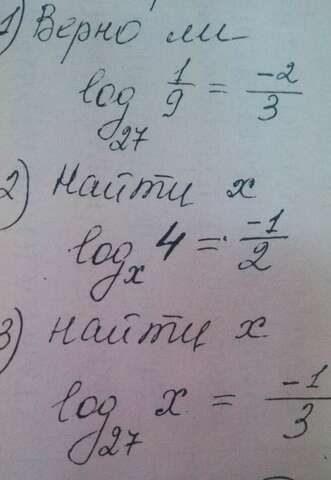 1) Верно ли
log_27 1/9 = -2/3
2) Найти x
log_x 4 = -1/2
3) Найти x
log_27 x = -1/3